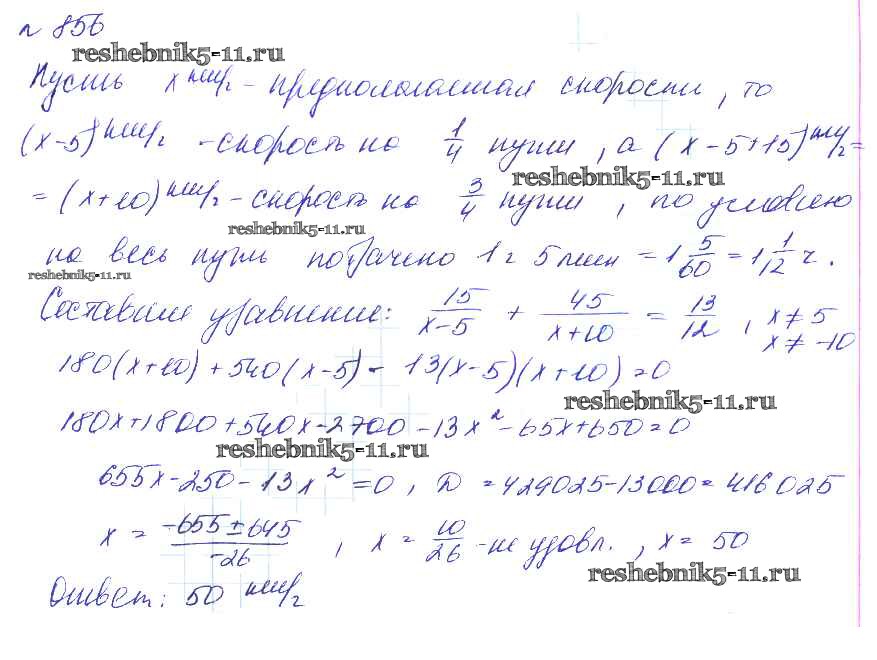 № 856
reshebnik5-11.ru
Пусть x км/г - предполагаемая скорость, то
(x-5) км/г - скорость на 1/4 пути, а (x-5+15) км/г =
reshebnik5-11.ru
= (x+10) км/г - скорость на 3/4 пути, по условию
reshebnik5-11.ru
на весь путь потрачено 1 г 5 мин = 1 5/60 = 1 1/12 г.
reshebnik5-11.ru
Составим уравнение: 15/(x-5) + 45/(x+10) = 13/12, x ≠ 5
x ≠ -10
180(x+10) + 540(x-5) - 13(x-5)(x+10) = 0
reshebnik5-11.ru
180x+1800+540x-2700-13x²-65x+650=0
reshebnik5-11.ru
655x-250-13x²=0, D = 429025-13000=416025
x = (-655±645)/(-26), x = 10/26 - не удовл., x = 50
reshebnik5-11.ru
Ответ: 50 км/г